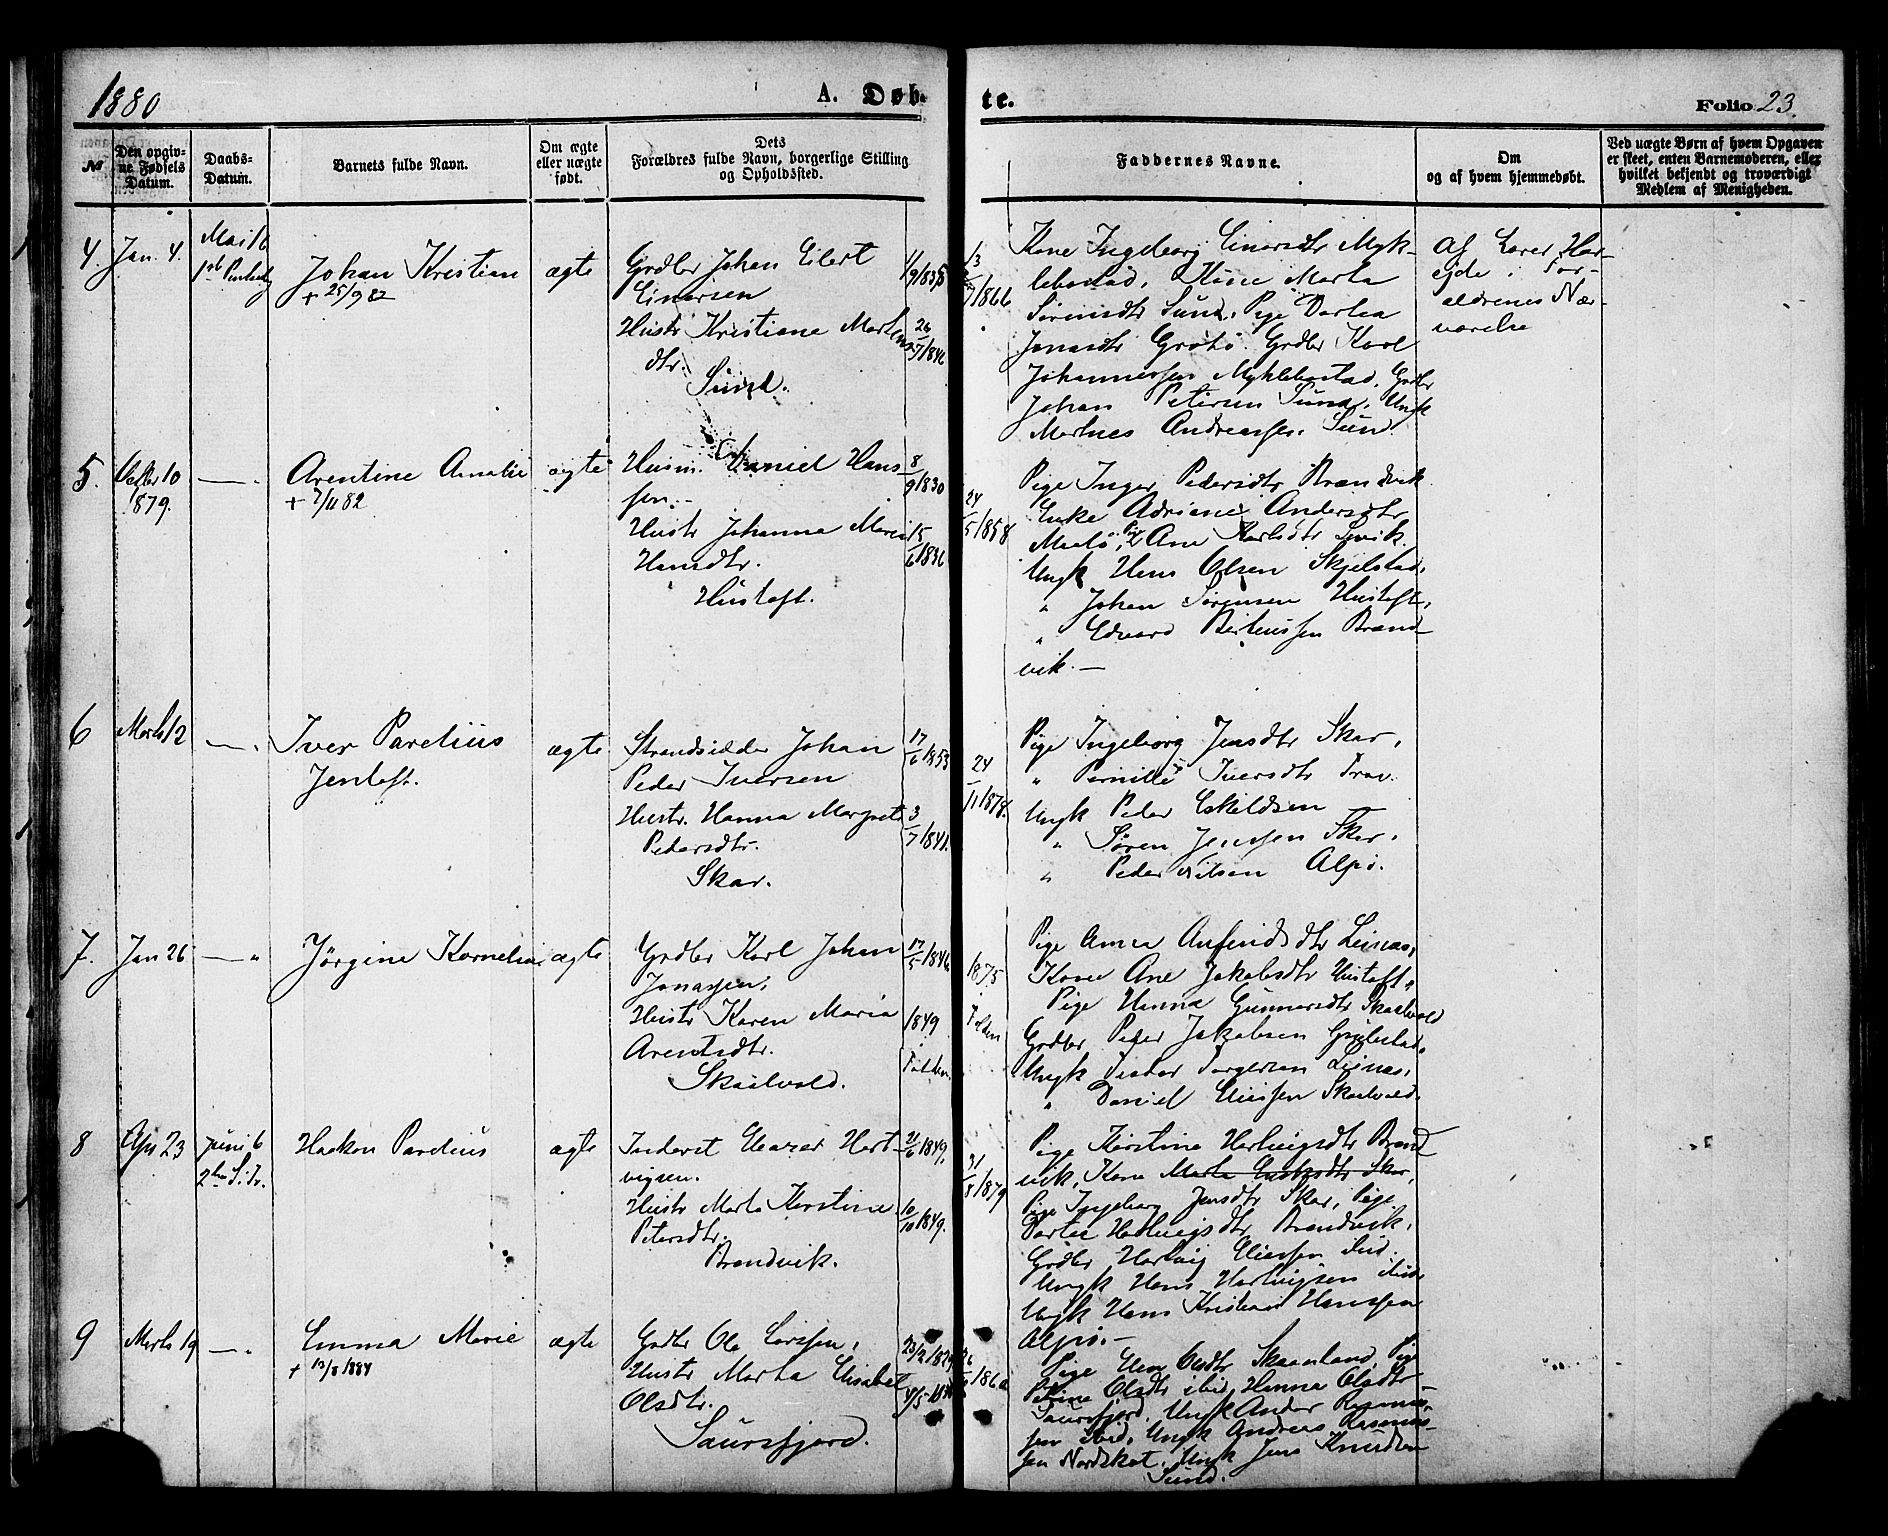 1880
A. Døb-
te.
Folio 23.
№
Den opgiv-
ne Fødsels
Datum.
Daabs-
Datum.
Barnets fulde Navn.
Om ægte
eller uægte
født.
Dets
Forældres fulde Navn, borgerlige Stilling
og Opholdssted.
Faddernes Navne.
Om
og af hvem hjemmedøbt.
Ved uægte Børn af hvem Opgaven
er skeet, enten Barnemoderen, eller
hvilket bekjendt og troværdigt
Medlem af Menigheden.
4. Jan. 4.
Mai 16
Johan Kristian
+ 25/9 82
ægte
Grdbr Johan Eilert
Einarsen
Hustr Kristiane Martens
dtr.
Sund.
26/7 1846
/1866
Kone Ingeborg Einarsdtr Myk-
lebostad, Kone Marta
Sørensdtr Sund, Pige Dortea
Jonasdtr Grøtø Grdbr Karl
Johannessen Myklebostad, Grdbr
Johan Petersen Sund, Ungk
Martines Andreassen Sund.
Af Lærer Har-
ejde i For-
ældrenes Nær-
værelse
5.
10
1879.
Arentine Amalie
+ 7/11 82
ægte
Husm. Daniel Hans-
sen
Hustr Johanna Maria
Hansdtr.
Hustoft.
8/9 1830
15/6 1836
24/5 1858
Pige Inger Pedersdtr Brandvik
Enke Adriane Andersdtr
Maalø, Pige Ane Karlsdtr
Ungk Hans Olsen Skjelstad,
" Johan Sørensen Hustoft,
" Edvard Berteussen Brand-
vik.—
6 Marts 12
Iver Parelius
Jentoft.
ægte
Strandsidder Johan
Peder Iversen
Hustr. Hanna Margrete
Pedersdtr.
Skar.
17/6 1853
3/7 1841.
24/11 1878.
Pige Ingeborg Jensdtr Skar,
" Pernille Iversdtr
Ungk Peder Eskildsen
" Søren Jenssen Skar,
" Peder Nilsen Alpø.
7. Jan 26
Jørgine Kornelia
ægte
Grdbr Karl Johan
Jonassen,
Hustr Karen Maria
Arentsdtr.
Skaalvold.
17/5 1846
1849
Folden.
1875
Folden
Pige Anna Anfindsdtr Leines,
Kone Ane Jakobsdtr Hustoft,
Pige Hanna Gunnarsdtr Skaalvold
Grdbr Peder Jakobsen
Ungk Torgersen Leines,
" Daniel Eliassen Skaalvold.
8 Apr 23
Juni 6
Haakon Parelius
ægte
Inderst Eleazer Hart-
vigsen.
Hustr Marta Kirstine
Petersdtr.
Brandvik.
21/6 1849,
10/10 1849.
31/8 1879
Pige Kirstine Hartvigsdtr Brand
vik, Kone Marta Skar,
Pige Ingeborg Jensdtr Skar, Pige
Dortea Hartvigsdtr Brandvik,
Grdbr Hartvig Eliassen ibid.
Ungk Hans Hartvigsen ibid.
Ungk Hans Kristian Hanssen
Alpø.—
9 Marts 19
Emma Marie
+ 13/8 1884
ægte
Grdbr Ole Larssen,
Hustr Marta Elisabet
Olsdtr.
Saursfjord.
Pige Olsdtr Skaanland, Pige
Petrine Olsdtr ibid, Hanna Olsdtr
Saursfjord, Ungk Ander Rasmus-
sen ibid, Ungk Andreas Rasmus-
sen Nordskot, Ungk Jens Knudsen
Sund.